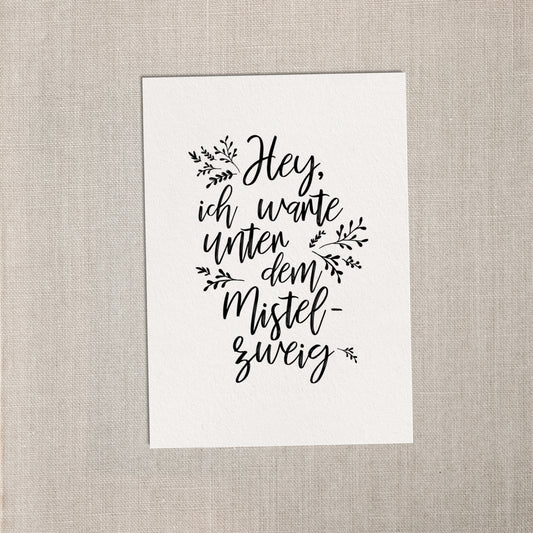 Hey,
ich warte
unter
dem
Mistel-
zweig